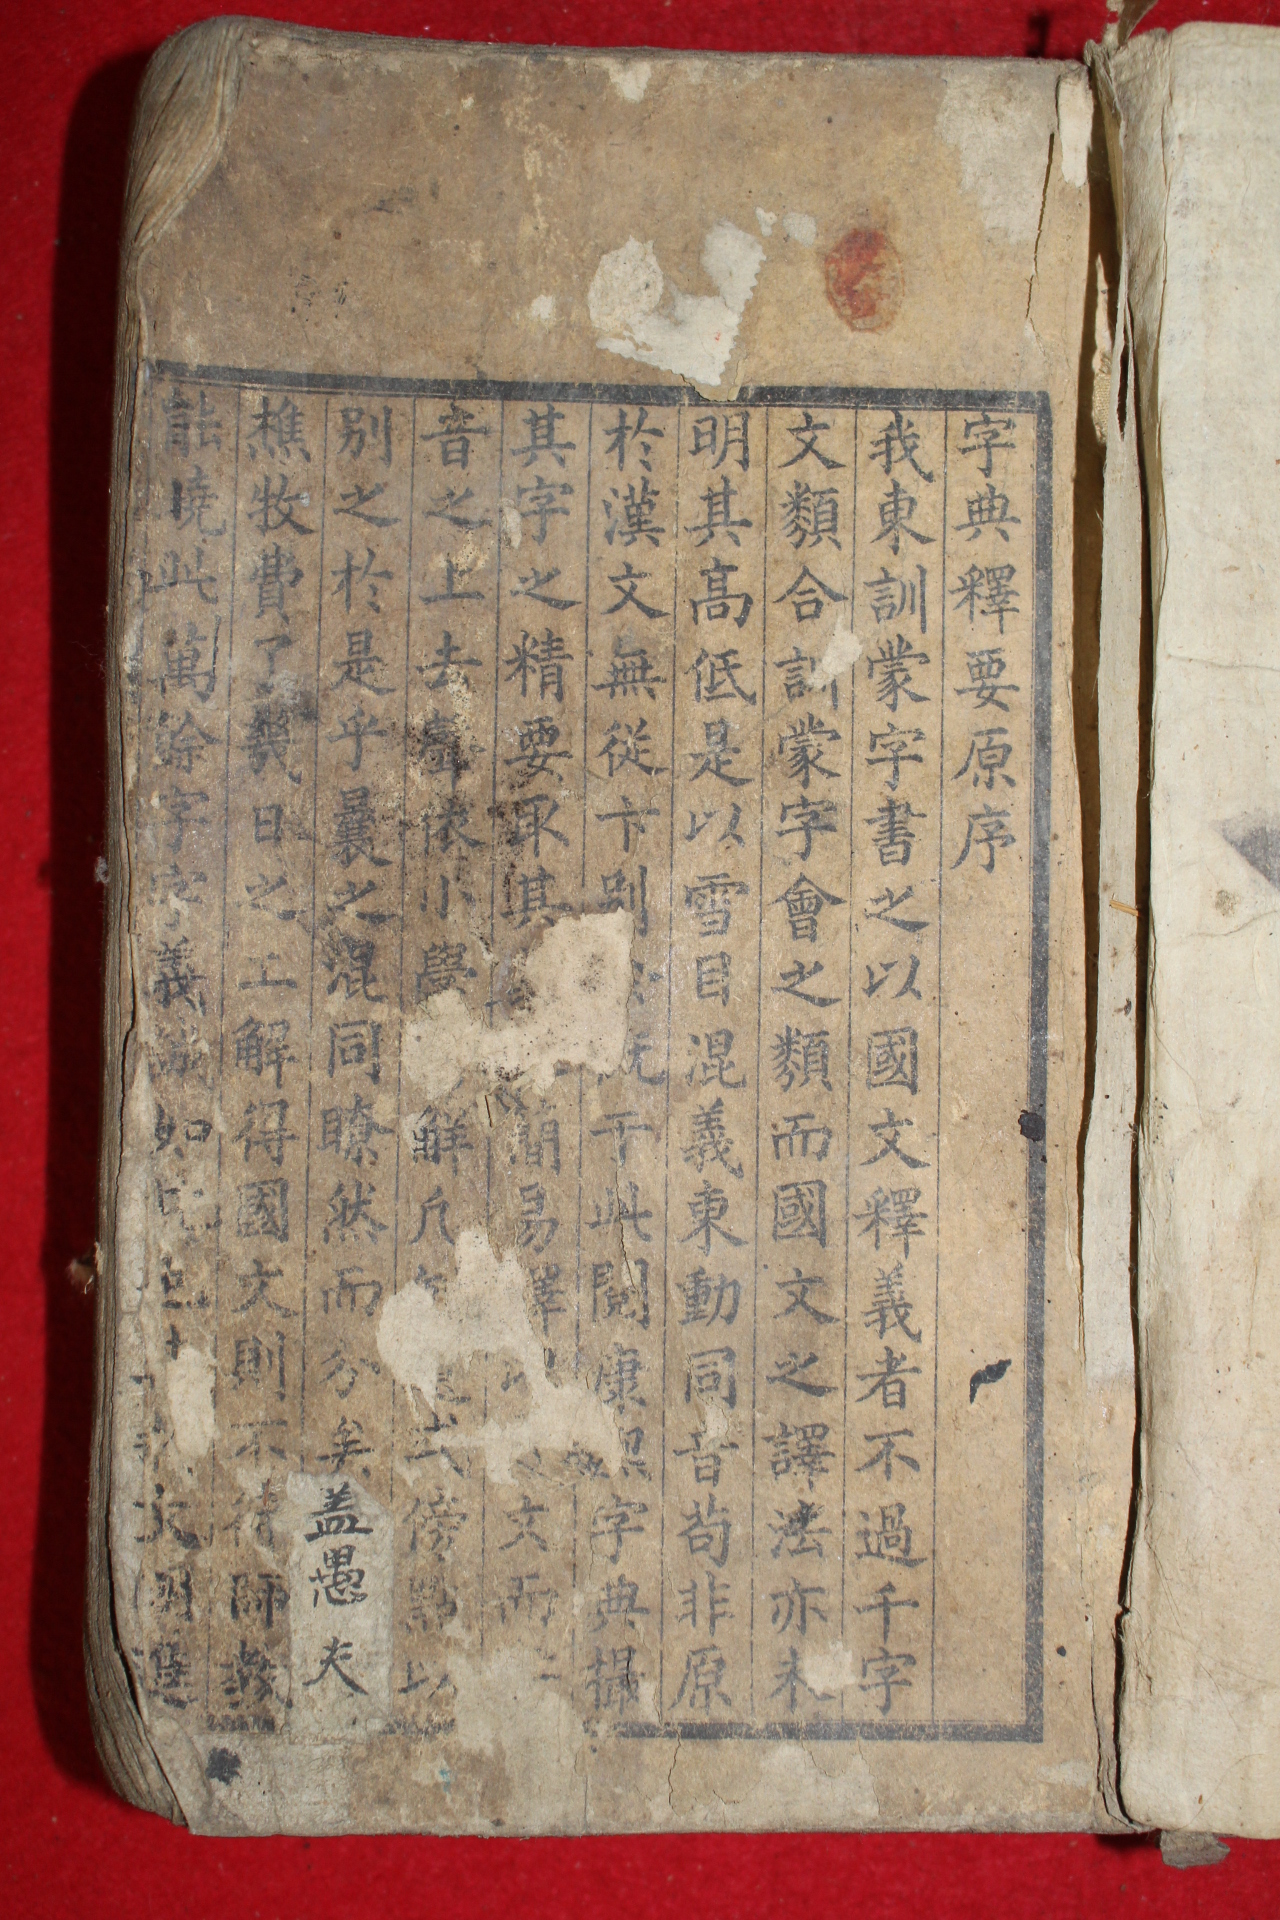 字典釋要原序
我東訓蒙字書之以國文釋義者不過千字
文類合訓蒙字會之類而國文之譯法亦未
明其高低是以雪目混義東動同音苟非原
於漢文無從卞別 旣于此閱康熙字典撮
其字之精要取其 簡易釋 文而
音之上去聲依小學 解凡 式傍點以
別之於是乎曩之混同瞭然而分矣盖愚夫
樵牧費了幾日之工解得國文則不待師敎
能曉此萬餘字字義 如 文國